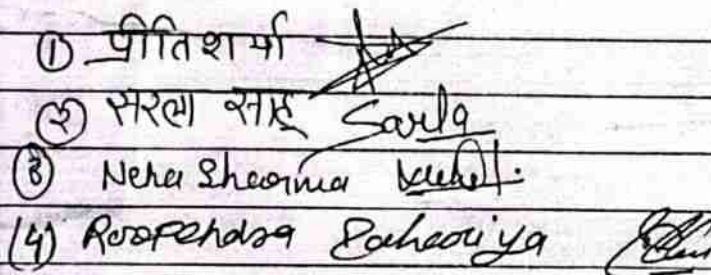 ① प्रीति शर्मा
② सरला साहू Sarla
③ Neha Sharma
(4) Roopendra